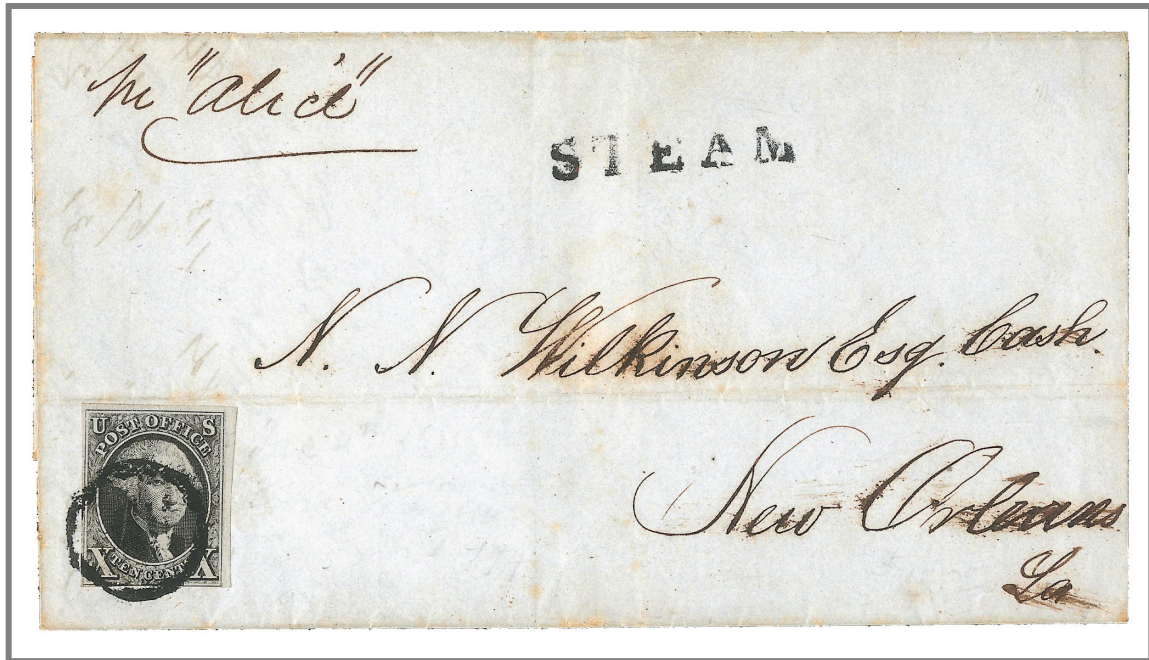 pr "Alice"
STEAM
N. N. Wilkinson Esq. Cash.
New Orleans
La
U S
POST OFFICE
X TEN CENTS X